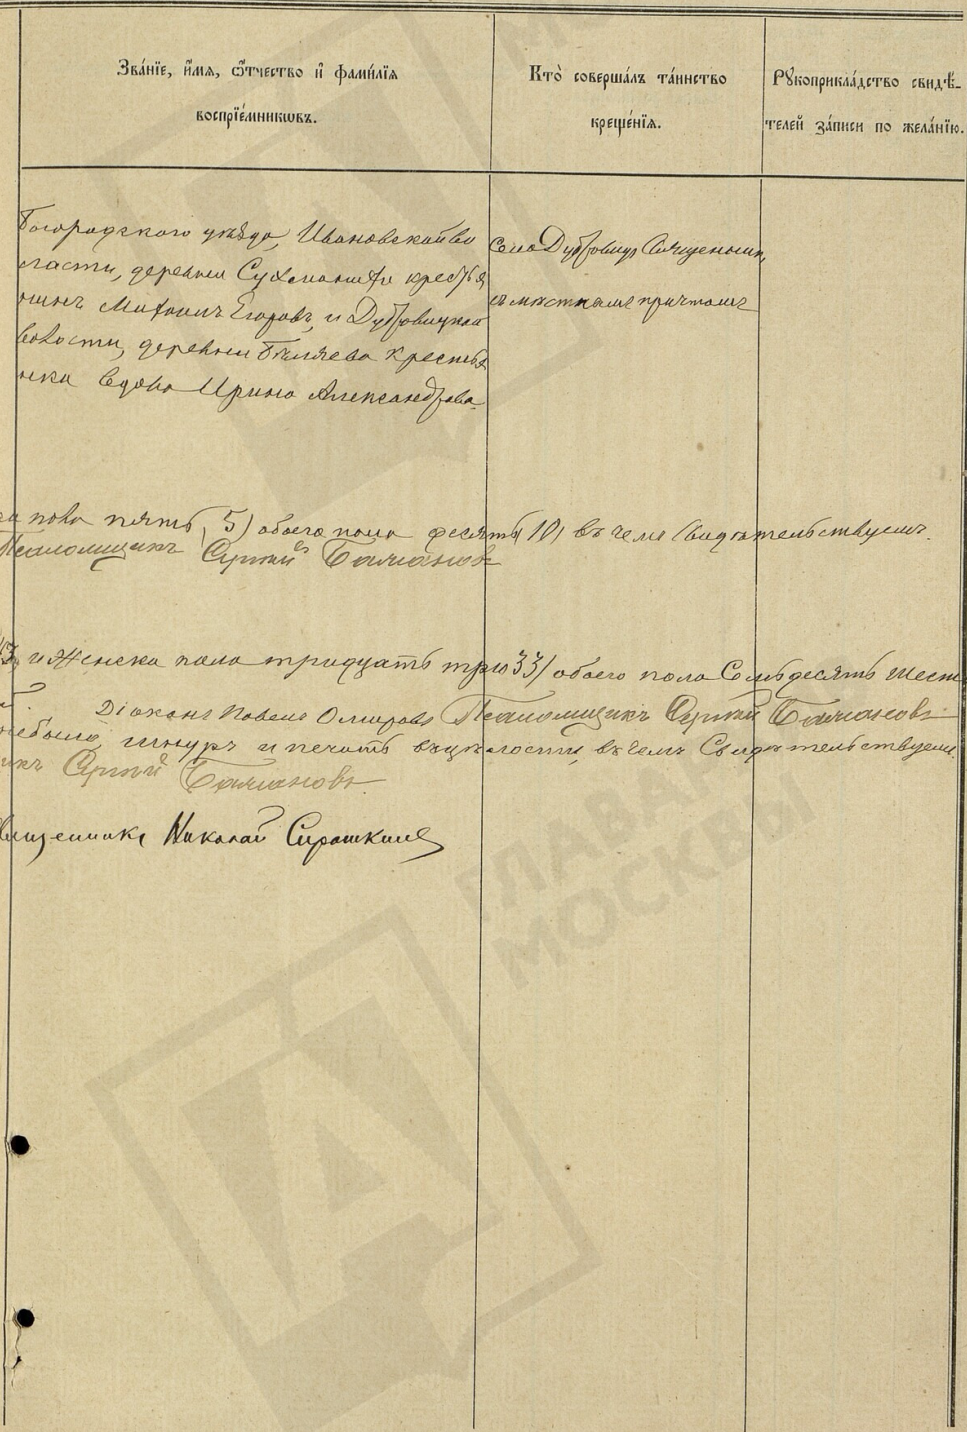 Зва́нїе, и҆́мѧ, ѻ҆́тчество и҆ фами́лїѧ
воспрїе́мникѡвъ.
Кто̀ соверша́лъ та́инство
креще́нїѧ.
Рꙋкоприкла́дство свидѣ́-
телей за́писи по жела́нїю.
Богородскаго уѣзда, Ивановской во
лости, деревни крестья
нинъ Михаилъ Егоровъ, и Дубровицкой
волости, деревни Бѣляева крестья
нка вдова Ирина Александрова.
Села Дубровицъ Священник
съ мѣстнымъ причтомъ
ка пола пять 5) обоего пола десять 10) въ чемъ свидѣтельствуемъ.
Псаломщикъ Сергій
3, и Женска пола тридцать три 33) обоего пола Семьдесятъ шесть
Діаконъ Павелъ Псаломщикъ Сергій
небыло, шнуръ и печать въ цѣлости, въ чемъ Свидѣтельствуемъ.
икъ Сергій
Священникъ Николай Сироткинъ
ГЛАВАРХИВ
МОСКВЫ